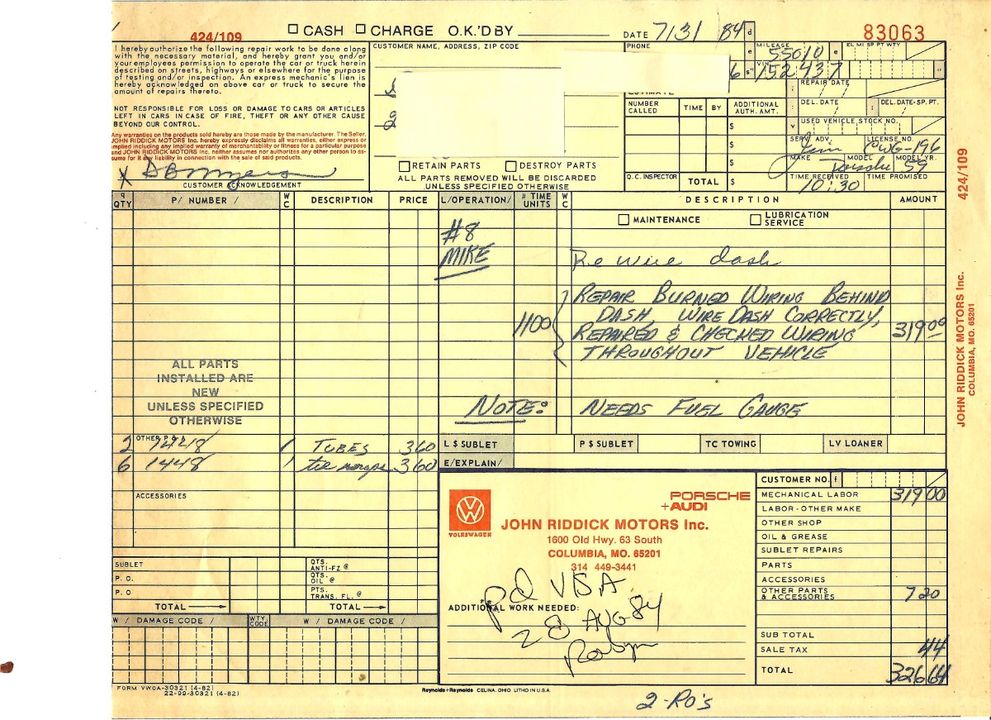 424/109
☐ CASH ☐ CHARGE O.K.'D BY
DATE 7/31 84
83063
I hereby authorize the following repair work to be done along
with the necessary material, and hereby grant you and/or
your employees permission to operate the car or truck herein
described on streets, highways or elsewhere for the purpose
of testing and/or inspection. An express mechanic's lien is
hereby acknowledged on above car or truck to secure the
amount of repairs thereto.
NOT RESPONSIBLE FOR LOSS OR DAMAGE TO CARS OR ARTICLES
LEFT IN CARS IN CASE OF FIRE, THEFT OR ANY OTHER CAUSE
BEYOND OUR CONTROL.
Any warranties on the products sold hereby are those made by the manufacturer. The Seller,
JOHN RIDDICK MOTORS Inc. hereby expressly disclaims all warranties, either express or
implied including any implied warranty of merchantability or fitness for a particular purpose
and JOHN RIDDICK MOTORS Inc. neither assumes nor authorizes any other person to as-
sume for it any liability in connection with the sale of said products.
X
CUSTOMER ACKNOWLEDGEMENT
CUSTOMER NAME, ADDRESS, ZIP CODE
☐ RETAIN PARTS ☐ DESTROY PARTS
ALL PARTS REMOVED WILL BE DISCARDED
UNLESS SPECIFIED OTHERWISE
PHONE
ESTIMATE
NUMBER CALLED TIME BY ADDITIONAL AUTH. AMT.
$
$
$
Q.C. INSPECTOR TOTAL $
MILEAGE
55010
VIN
152437
REPAIR DATE
DEL. DATE DEL. DATE-SP. PT.
USED VEHICLE STOCK NO.
SERV. ADV. LICENSE NO.
Jim CWG-196
MAKE MODEL MODEL YR.
Porsche 59
TIME RECEIVED TIME PROMISED
10:30
QTY P/ NUMBER / WC DESCRIPTION PRICE L/OPERATION/ # TIME UNITS WC DESCRIPTION AMOUNT
☐ MAINTENANCE ☐ LUBRICATION SERVICE
#8
MIKE Re wire dash
REPAIR BURNED WIRING BEHIND
DASH, WIRE DASH CORRECTLY,
1100 REPAIRED & CHECKED WIRING 319 00
THROUGHOUT VEHICLE
ALL PARTS
INSTALLED ARE
NEW
UNLESS SPECIFIED
OTHERWISE
NOTE: NEEDS FUEL GAUGE
2 14418 1 TUBES 360
6 1448 1 tie wraps 360
L $ SUBLET P $ SUBLET TC TOWING LV LOANER
E/EXPLAIN/
ACCESSORIES
SUBLET
P. O.
P. O
TOTAL
QTS. ANTI-FZ @
QTS. OIL @
PTS. TRANS. FL. @
TOTAL
W / DAMAGE CODE / WTY CODE W / DAMAGE CODE /
VOLKSWAGEN
PORSCHE
+AUDI
JOHN RIDDICK MOTORS Inc.
1600 Old Hwy. 63 South
COLUMBIA, MO. 65201
314 449-3441
pd VISA
ADDITIONAL WORK NEEDED:
28 AUG 84
Robyn
CUSTOMER NO.
MECHANICAL LABOR 319 00
LABOR-OTHER MAKE
OTHER SHOP
OIL & GREASE
SUBLET REPAIRS
PARTS
ACCESSORIES
OTHER PARTS & ACCESSORIES 7 20
SUB TOTAL
SALE TAX 44
TOTAL 326 64
FORM VWOA-30321 (4-82)
22-99-30321 (4-82)
Reynolds+Reynolds CELINA, OHIO LITHO IN U.S.A.
2-RO's
424/109
JOHN RIDDICK MOTORS Inc.
COLUMBIA, MO. 65201